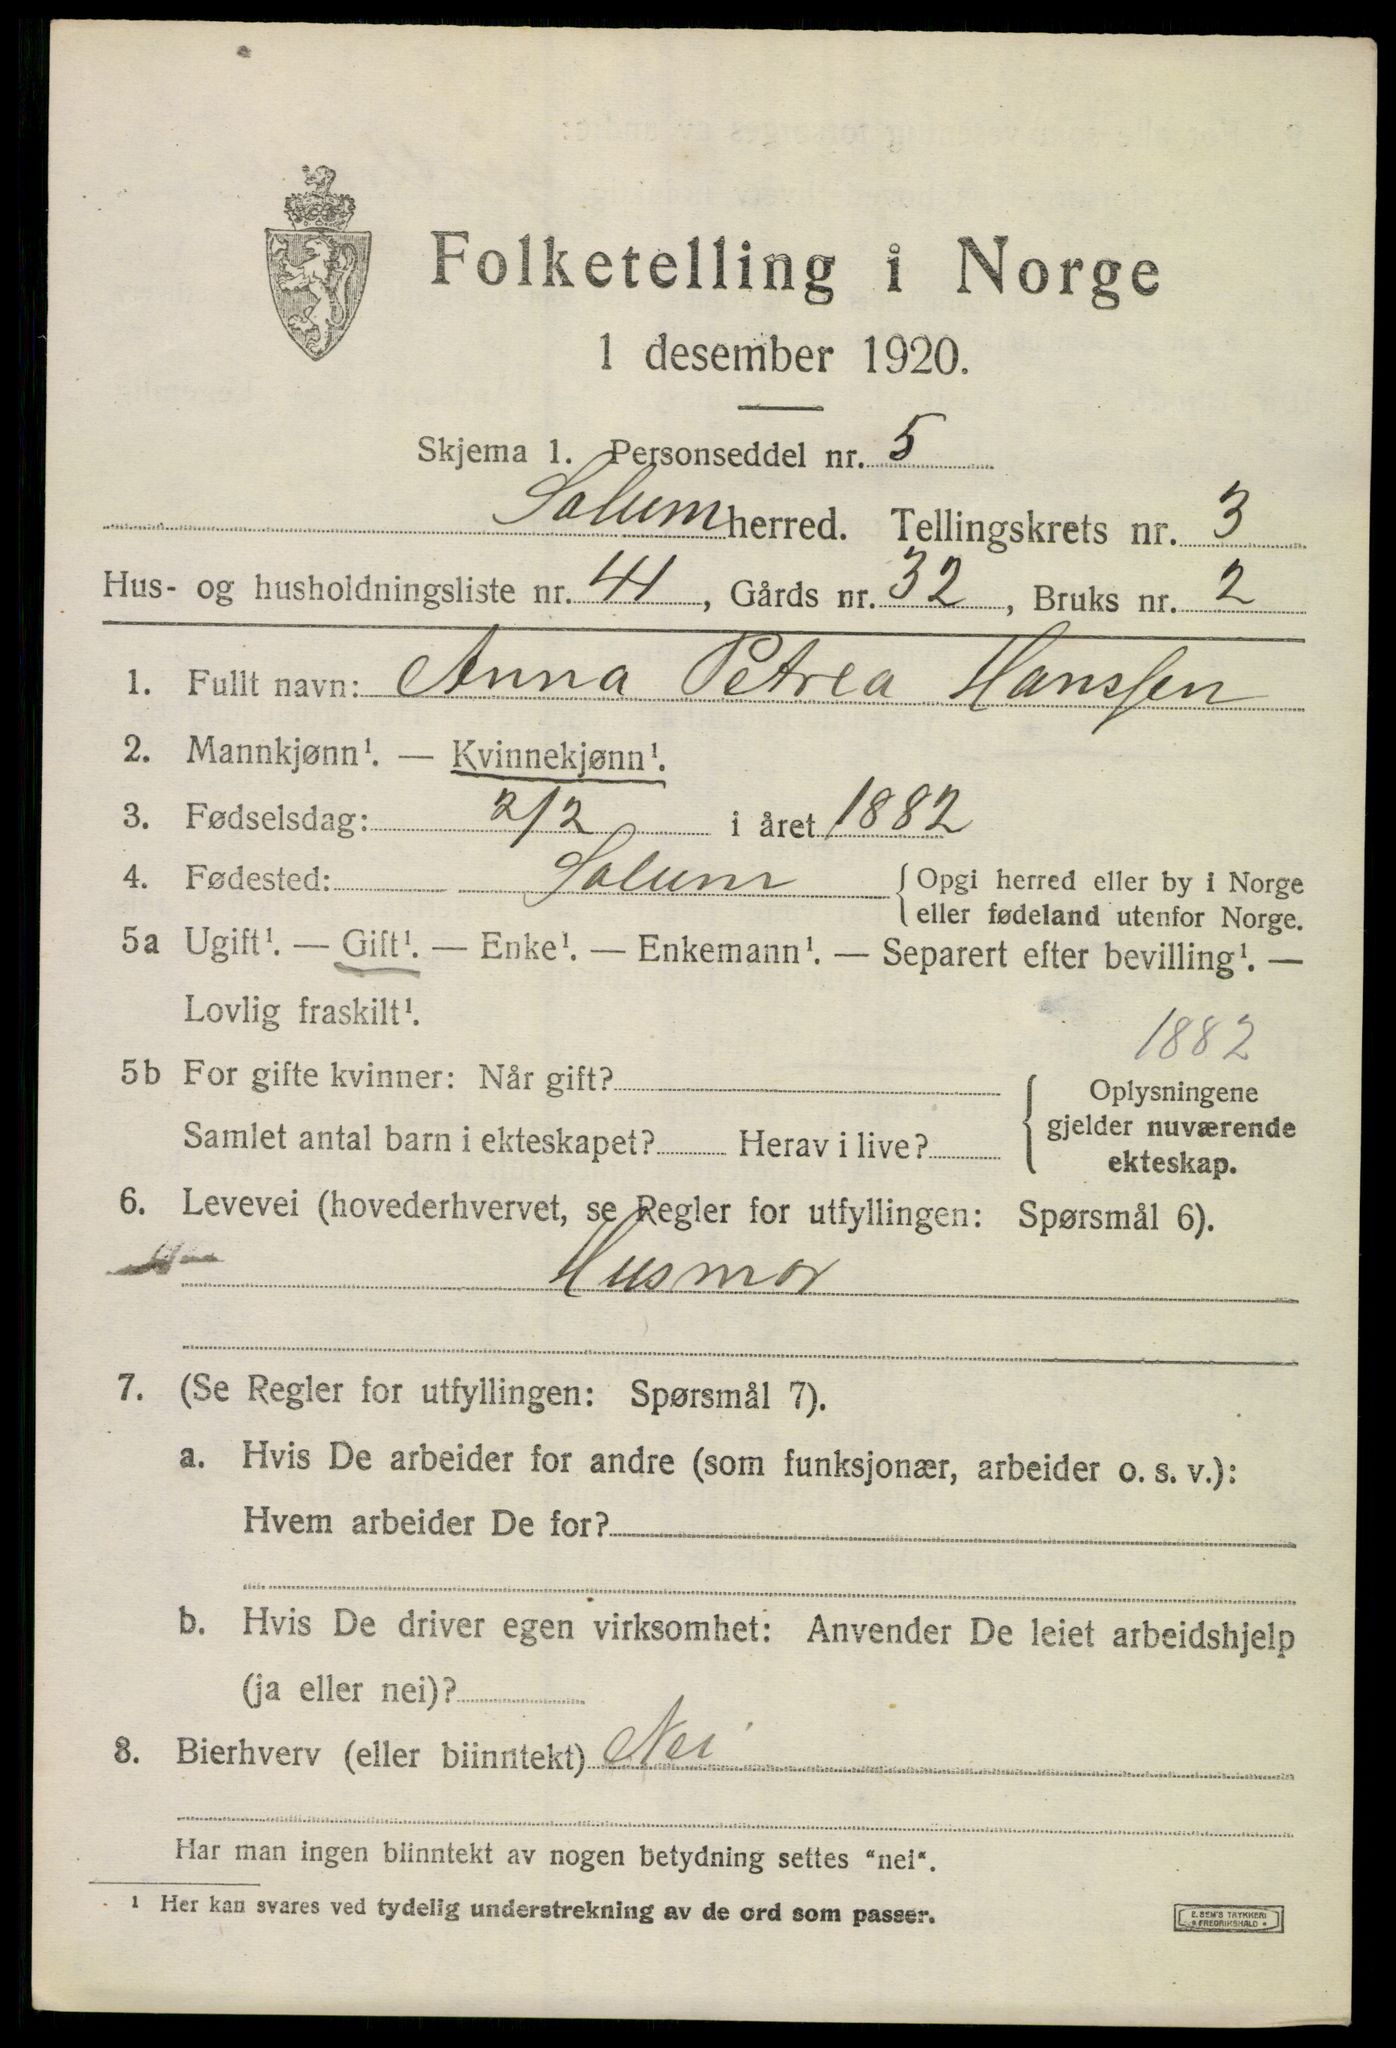 Folketelling i Norge
1 desember 1920.
Skjema 1. Personseddel nr. 5
Solum herred. Tellingskrets nr. 3
Hus- og husholdningsliste nr. 41, Gårds nr. 32, Bruks nr. 2
1. Fullt navn: Anna Petrea Hanssen
2. Mannkjønn¹. — Kvinnekjønn¹.
3. Fødselsdag: 2/2 i året 1882
4. Fødested: Solum { Opgi herred eller by i Norge
eller fødeland utenfor Norge.
5a Ugift¹. — Gift¹. — Enke¹. — Enkemann¹. — Separert efter bevilling¹. —
Lovlig fraskilt¹.
1882
5b For gifte kvinner: Når gift?
Samlet antal barn i ekteskapet? Herav i live?
{ Oplysningene
gjelder nuværende
ekteskap.
6. Levevei (hovederhvervet, se Regler for utfyllingen: Spørsmål 6).
Husmor
7. (Se Regler for utfyllingen: Spørsmål 7).
a. Hvis De arbeider for andre (som funksjonær, arbeider o. s. v.):
Hvem arbeider De for?
b. Hvis De driver egen virksomhet: Anvender De leiet arbeidshjelp
(ja eller nei)?
8. Bierhverv (eller biinntekt) Nei
Har man ingen biinntekt av nogen betydning settes "nei".
¹ Her kan svares ved tydelig understrekning av de ord som passer.
E. SEM'S TRYKKERI
FREDRIKSHALD